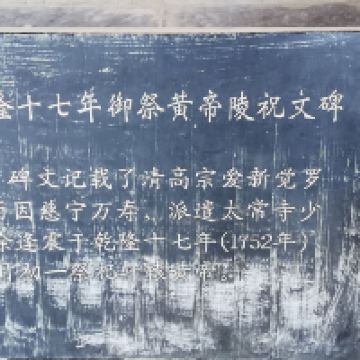 隆十七年御祭黄帝陵祝文碑
碑文记载了清高宗爱新觉罗
因慈宁万寿、派遣太常寺少
涂逢震于乾隆十七年(1752年)
初一祭祀